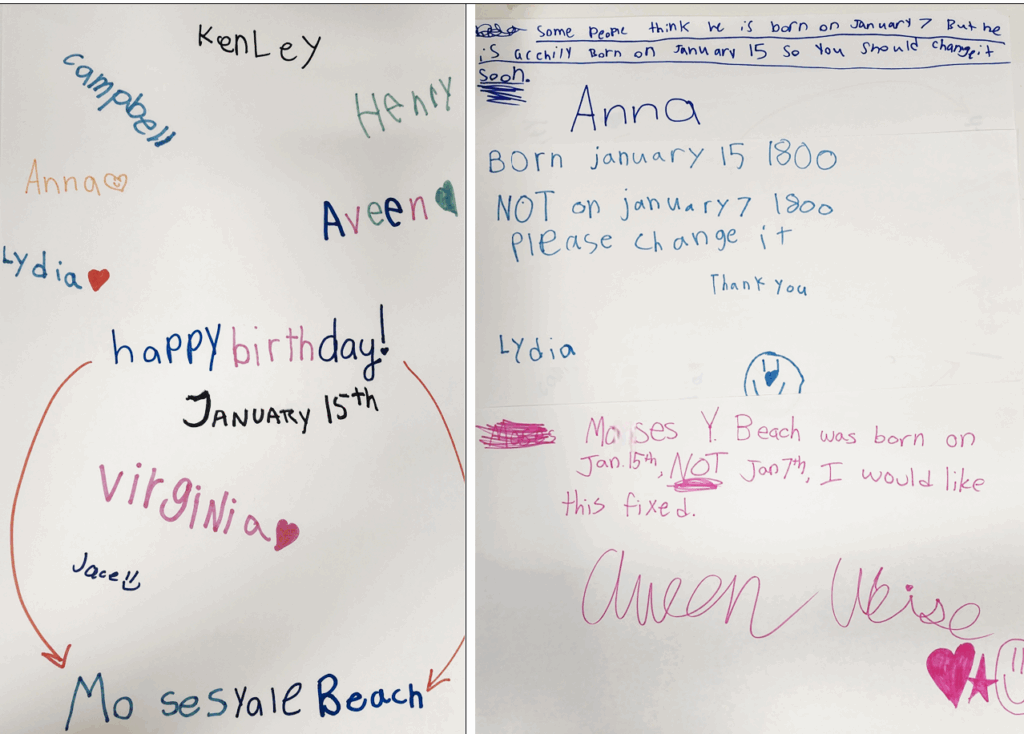 KenLey
Campbell
Henry
Anna
Aveen
Lydia
happy birthday!
JANUARY 15th
VirgiNia
Jace
Mo sesYale Beach
Some PeoPle think he is born on January 7 But he
is acchily Born on January 15 so You Should change it
Soon.
Anna
BOrn january 15 1800
NOT on january 7 1800
Please change it
Thank you
Lydia
Moises Y. Beach was born on
Jan. 15th, NOT Jan 7th, I would like
this fixed.
Aveen Weise